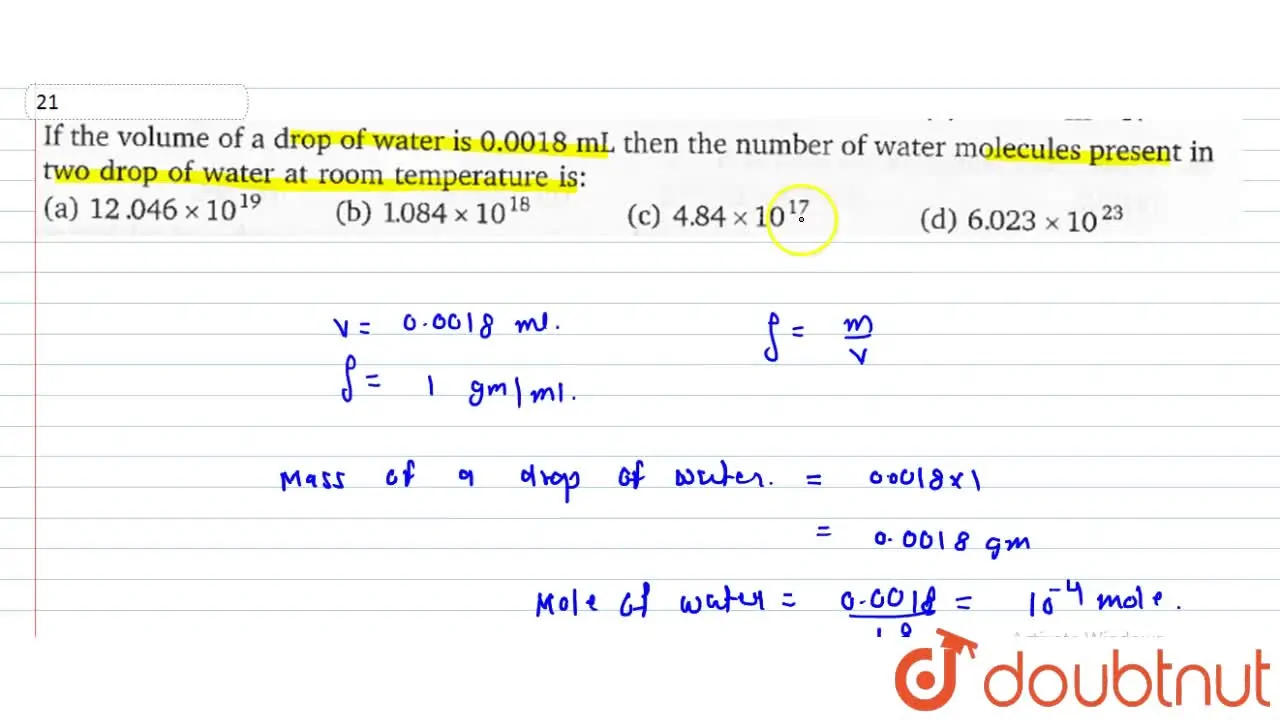 21
If the volume of a drop of water is 0.0018 mL then the number of water molecules present in
two drop of water at room temperature is:
(a) 12.046 × 10¹⁹ (b) 1.084 × 10¹⁸ (c) 4.84 × 10¹⁷ (d) 6.023 × 10²³
v = 0.0018 ml. ρ = m/v
ρ = 1 gm/ml.
Mass of a drop of water. = 0.0018×1
= 0.0018 gm
Mole of water = 0.0018/18 = 10⁻⁴ mole.
doubtnut